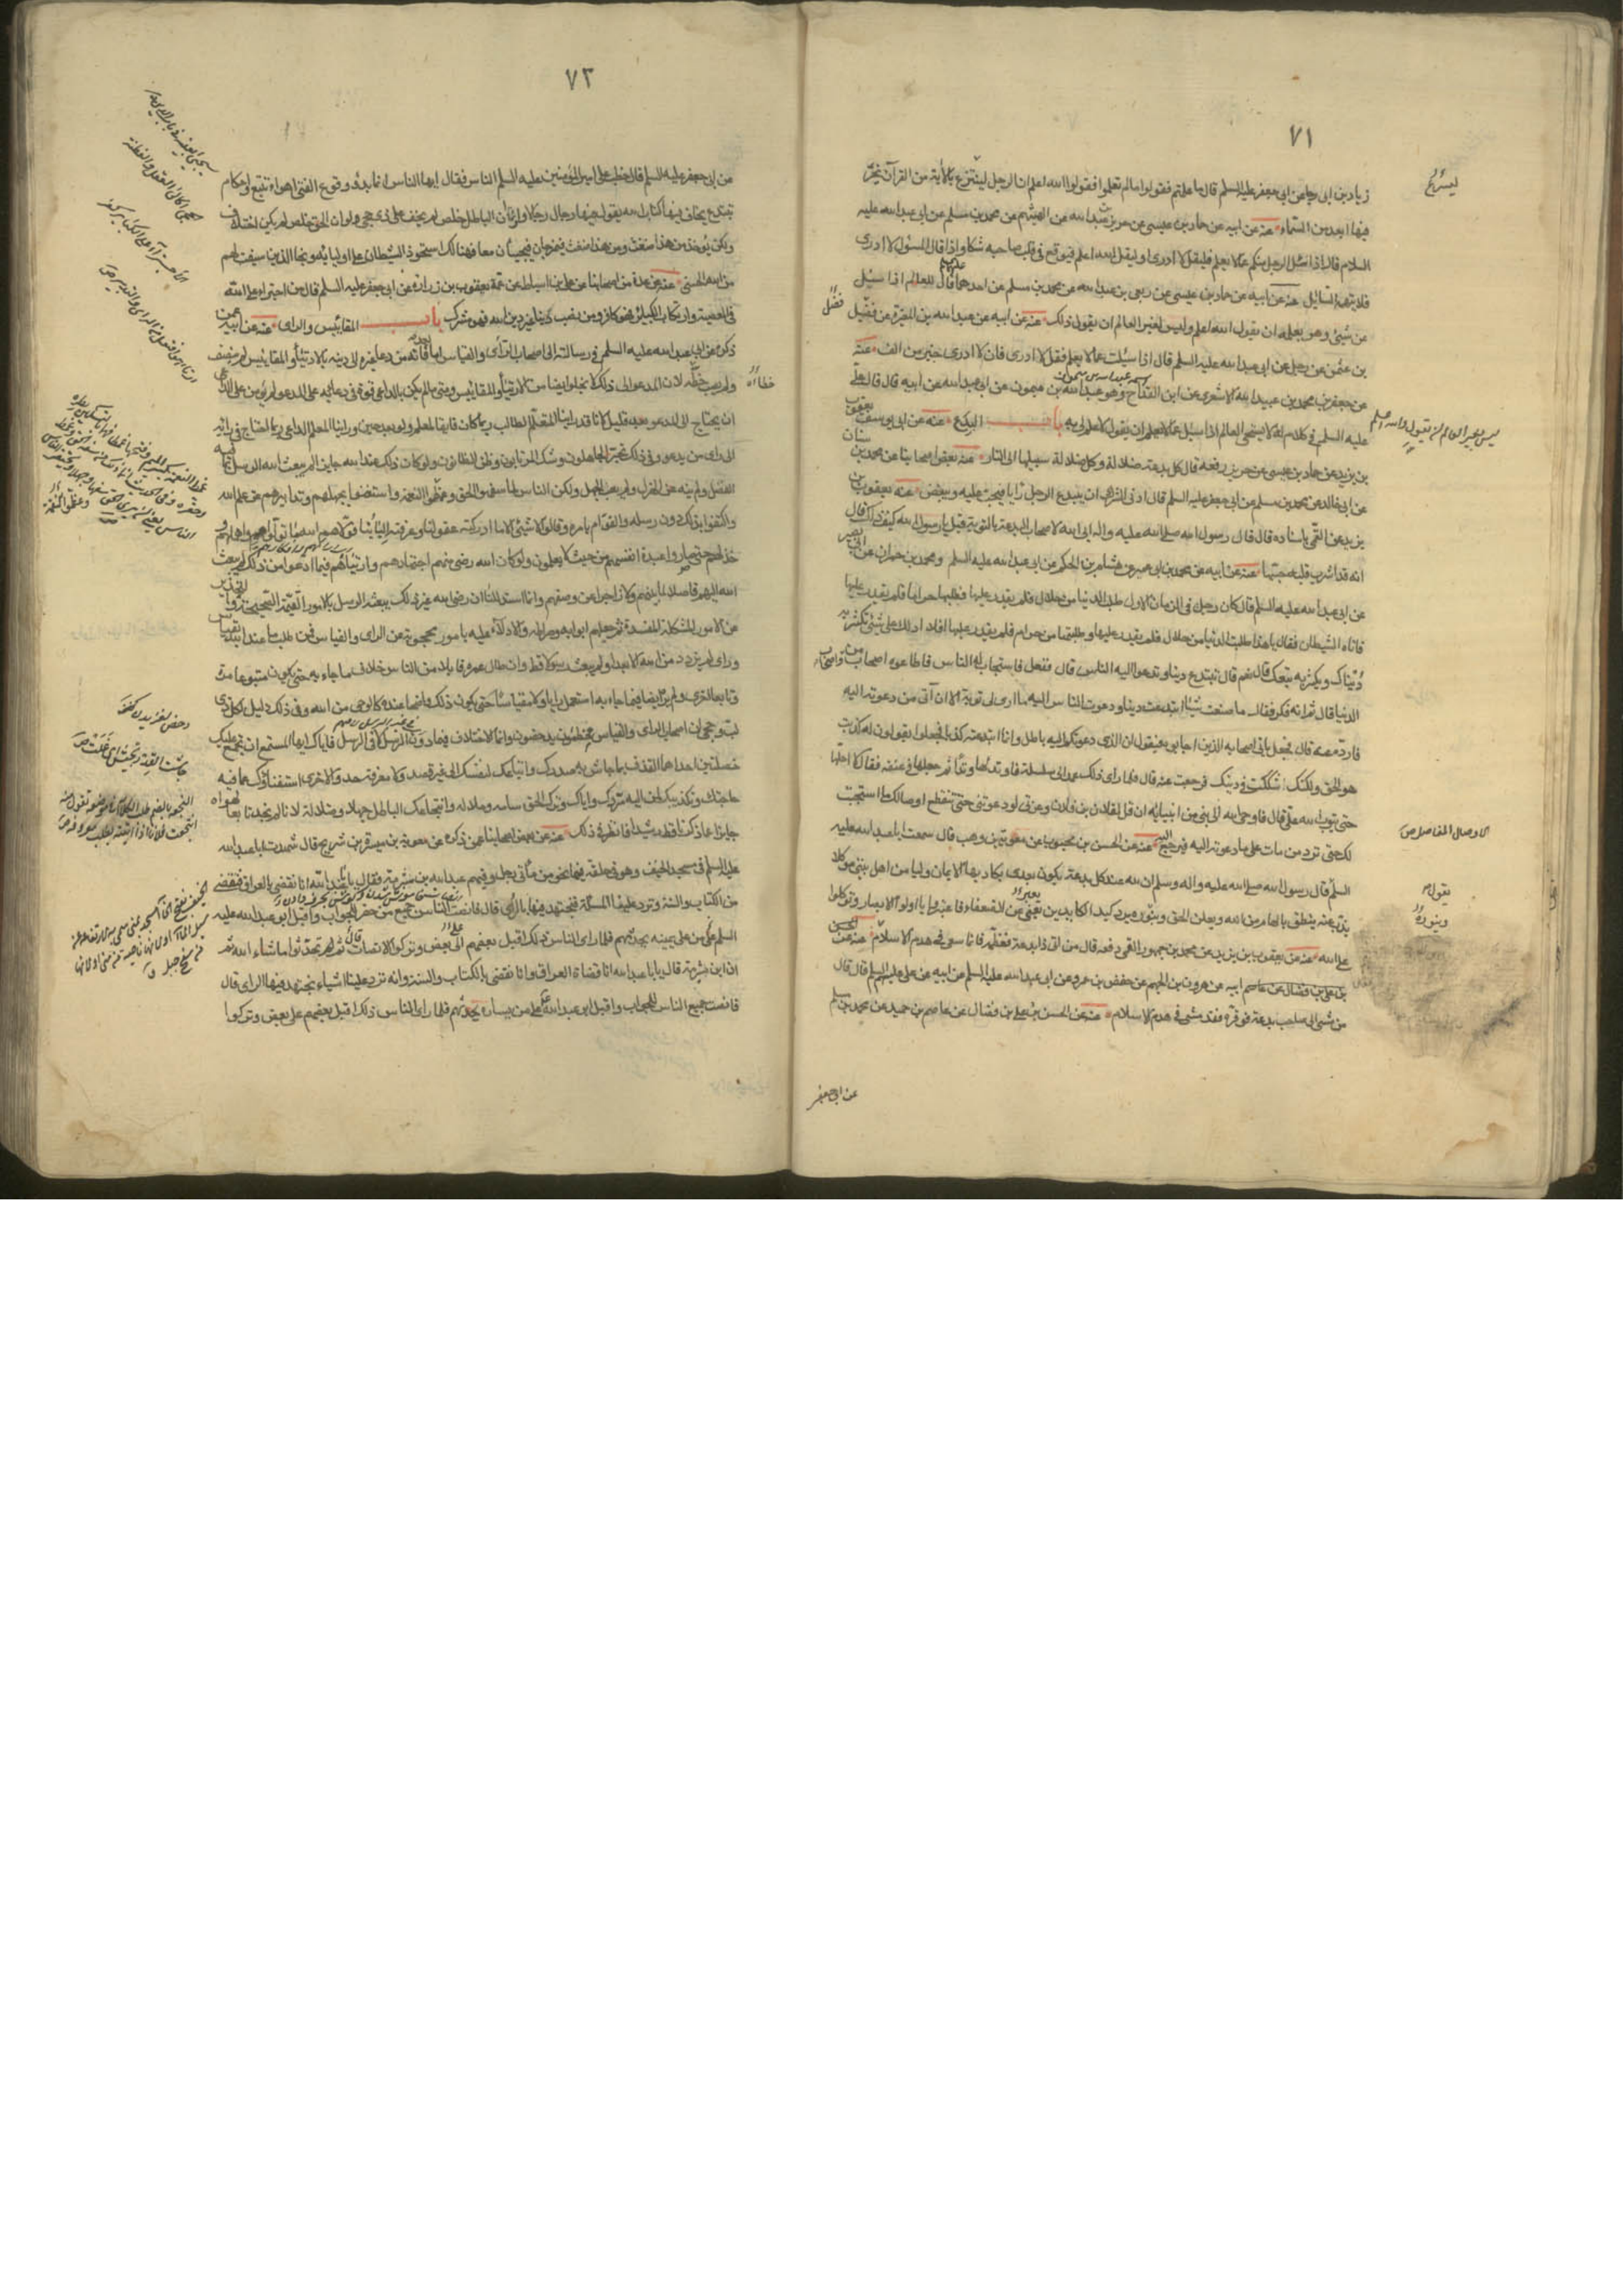 ٧١
زياد بن ابى رجا عن ابى جعفر عليه السلم قال ما علمتم فقولوا وما لم تعلموا فقولوا الله اعلم ان الرجل لينتزع بالآية من القرآن يخرّ
فيها ابعد من السّماء عنه عن ابيه عن حماد بن عيسى عن حريز بن عبد الله عن الهيثم عن محمد بن مسلم عن ابى عبد الله عليه
السلام قال اذا سئل الرجل منكم عمّا لا يعلم فليقل لا ادرى ولا يقل الله اعلم فيوقع فى قلب صاحبه شكا واذا قال المسئول لا ادرى
فلا يتهمه السّايل عنه عن ابيه عن حماد بن عيسى عن ربعى بن عبد الله عن محمد بن مسلم عن احدهما قال للعالم اذا سئل
من شيئ وهو يعلمه ان يقول الله اعلم وليس لغير العالم ان يقول ذلك عنه عن ابيه عن عبد الله بن المغيرة عن فضيل
بن عثمن عن رجل عن ابى عبد الله عليه السلم قال اذا سئلت عما لا يعلم فقل لا ادرى فان لا ادرى خير من الف عنه
عن جعفر بن محمد بن عبيد الله الاشعرى عن ابن القداح وهو عبد الله بن ميمون عن ابى عبد الله عن ابيه قال قال على
عليه السلم فى كلام له لا يستحى العالم اذا سئل عمّا لا يعلم ان يقول لا علم لى به باب البدع عنه عن ابى يوسف يعقوب
بن يزيد عن حماد بن عيسى عن حريز رفعه قال كل بدعة ضلالة وكل ضلالة سبيلها الى النار عنه بعض اصحابنا عن محمد بن سنان
عن ابى خالد عن محمد بن مسلم عن ابى جعفر عليه السلم قال ادنى الشرك ان يبتدع الرجل رأيا فيحب عليه ويبغض عنه يعقوب بن
يزيد عن القمى باسناده قال قال رسول الله صلى الله عليه واله ابى الله لاصحاب البدعة بالتوبة قيل يا رسول الله كيف ذلك قال
انه قد اشرب قلبه حبّها عنه عن ابيه عن محمد بن ابى عمير عن هشام بن الحكم عن ابى عبد الله عليه السلم ومحمد بن حمران عن ابى بصير
عن ابى عبد الله عليه السلم قال كان رجل فى الزمان الاول طلب الدنيا من حلال فلم يقدر عليها فطلبها حراما فلم يقدر عليها
فاتاه الشيطان فقال يا هذا طلبت الدنيا من حلال فلم يقدر عليها وطلبتها من حرام فلم يقدر عليها افلا ادلك على شئ تكثر به
دنياك ويكثر به تبعك قال نعم قال تبتدع دينا وتدعوا اليه الناس قال ففعل فاستجاب له الناس فاطاعوه اصحاب من
الدنيا قال ثم انه فكر فقال ما صنعت شيئا ابتدعت دينا ودعوت الناس اليه ما ارى لى توبة الا ان آتى من دعوته اليه
فاردّه عنه قال فجعل ياتى اصحابه الذين اجابوه فيقول ان الذى دعوتكم اليه باطل وانا ابتدعته كذبا فجعلوا يقولون له كذبت
هو الحق ولكنك شككت فى دينك فرجعت عنه قال فلما راى ذلك عمد الى سلسلة فاوتد لها وتدا ثم جعلها فى عنقه فقال لا احلّها
حتى يتوب الله على قال فاوحى الله الى نبى من انبيائه ان قل لفلان بن فلان وعزتى لو دعوتنى حتى تنقطع اوصالك ما استجبت
لك حتى ترد من مات على ما دعوته اليه فيرجع عنه عن الحسن بن محبوب عن معوية بن وهب قال سمعت ابا عبد الله عليه
السلم قال رسول الله صلى الله عليه واله وسلم ان لله عند كل بدعة يكون بعدى يكاد بها الايمان وليا من اهل بيتى موكلا
يذب عنه ينطق بالهام من الله ويعلن الحق وينوره ويرد كيد الكايدين يعنى عن الضعفاء فاعتبروا يا اولو الابصار وتوكلوا
على الله عنه عن يعقوب بن يزيد عن محمد بن جمهور القمى رفعه قال من اتى ذا بدعة فعظّمه فانما سعى فى هدم الاسلام عنه عن الحسن
بن على بن فضال عن عاصم ابيه عن هرون بن الجهم عن حفص بن عمرو عن ابى عبد الله عليه السلم عن ابيه عن على عليه السلم قال قال
من مشى الى صاحب بدعة فوقره فقد مشى فى هدم الاسلام عنه عن الحسن بن على بن فضال عن عاصم بن حميد عن محمد بن مسلم
عن ابى جعفر
الاوصال المفاصل ص
يقول م
وينوره
٧٢
عن ابى جعفر عليه السلم قال خطب على امير المؤمنين عليه السلم الناس فقال ايها الناس انما بدؤ وقوع الفتن اهواء تتبع واحكام
تبتدع يخالف فيها كتاب الله يقول فيها رجال رجالا ولو ان الباطل خلص لم يخف على ذى حجى ولو ان الحق خلص لم يكن اختلاف
ولكن يؤخذ من هذا ضغث ومن هذا ضغث فيمزجان فيجيئان معا فهنالك استحوذ الشيطان على اوليائه ونجا الذين سبقت لهم
من الله الحسنى عنه عن عدة من اصحابنا عن على بن اسباط عن عمه يعقوب بن زرارة عن ابى جعفر عليه السلم قال من اجترى على الله
فى المعصية وارتكاب الكبائر فهو كافر ومن نصب دينا غير دين الله فهو مشرك باب المقائيس والراى عنه عن ابيه عمن
ذكره عن ابى عبد الله عليه السلم فى رسالته الى اصحاب الراى والقياس اما بعد فانه من دعا غيره الى دينه بالارتياء والمقائيس لم ينصف
ولم يصب حظّه لان المدعو الى ذلك لا يخلو ايضا من الارتياء والمقائيس ومتى ما لم يكن بالداعى قوة فى دعائه على المدعو لم يؤمن على الداعى
ان يحتاج الى المدعو بعد قليل لانا قد راينا المتعلم الطالب ربما كان فائقا لمعلم ولو بعد حين وراينا المعلم الداعى ربما احتاج فى رايه
الى راى من يدعو وفى ذلك تحيّر الجاهلون وشك المرتابون وظن الظانون ولو كان ذلك عند الله جايزا لم يبعث الله الرسل بما فيه
الفصل ولم ينه عن الهزل ولم يعب الجهل ولكن الناس لما سفهوا الحق وغمطوا النعمة واستغنوا بجهلهم وتدابيرهم عن علم الله
واكتفوا بذلك دون رسله والقوّام بامره وقالوا لا شئ الا ما ادركته عقولنا وعرفته البابنا فولّاهم الله ما تولوا واهملهم و
خذلهم حتى صاروا عبدة انفسهم من حيث لا يعلمون ولو كان الله رضى منهم اجتهادهم وارتياءهم فيما ادعوا من ذلك لم يبعث
الله اليهم فاصلا لما بينهم ولا زاجرا عن وصفهم وانما استدللنا ان رضا الله غير ذلك ببعثه الرسل بالامور القيّمة الصحيحة والتحذير
عن الامور المشكلة المفسدة ثم جعلهم ابوابه وصراطه والادلاء عليه بامور محجوبة عن الراى والقياس فمن طلب ما عند الله بقياس
وراى لم يزدد من الله الا بعدا ولم يبعث رسولا قط وان طال عمره قابلا من الناس خلاف ما جاء به حتى يكون متبوعا مرة
وتابعا اخرى ولم ير ايضا فيما جاء به استعمل رايا ولا مقياسا حتى يكون ذلك واضحا عنده كالوحى من الله وفى ذلك دليل لكل ذى
لب وحجى ان اصحاب الراى والقياس مخطئون مدحضون وانما الاختلاف فيما دون الرسل لا فى الرسل فاياك ايها المستمع ان تجمع عليك
خصلتين احداهما القذف بما جاش به صدرك واتباعك لنفسك الى غير قصد ولا معرفة حد والاخرى استغناؤك عما فيه
حاجتك وتكذيبك لمن اليه مردك واياك وترك الحق سامة وملالة وانتجاعك الباطل جهلا وضلالة لانا لم نجد تابعا لهواه
جايزا عما ذكرنا قط رشيدا فانظر فى ذلك عنه عن بعض اصحابنا عمن ذكره عن معوية بن ميسرة بن شريح قال شهدت ابا عبد الله
عليه السلم فى مسجد الخيف وهو فى حلقة فيها نحو من مأتى رجل وفيهم عبد الله بن شبرمة فقال يا با عبد الله انا نقضى بالعراق فنقضى
من الكتاب والسنة وترد علينا المسئلة فنجتهد فيها بالراى قال فانصت الناس جميع من حضر للجواب واقبل ابو عبد الله عليه
السلم على من على يمينه يحدثهم فلما راى الناس ذلك اقبل بعضهم الى بعض وتركوا الانصات قال ثم تحدثوا ما شاء الله ثم
ان ابن شبرمة قال يا با عبد الله انا قضاة العراق وانا نقضى بالكتاب والسنة وانه ترد علينا اشياء نجتهد فيها الراى قال
فانصت جميع الناس للجواب واقبل ابو عبد الله على من يساره يحدثهم فلما راى الناس ذلك اقبل بعضهم على بعض وتركوا